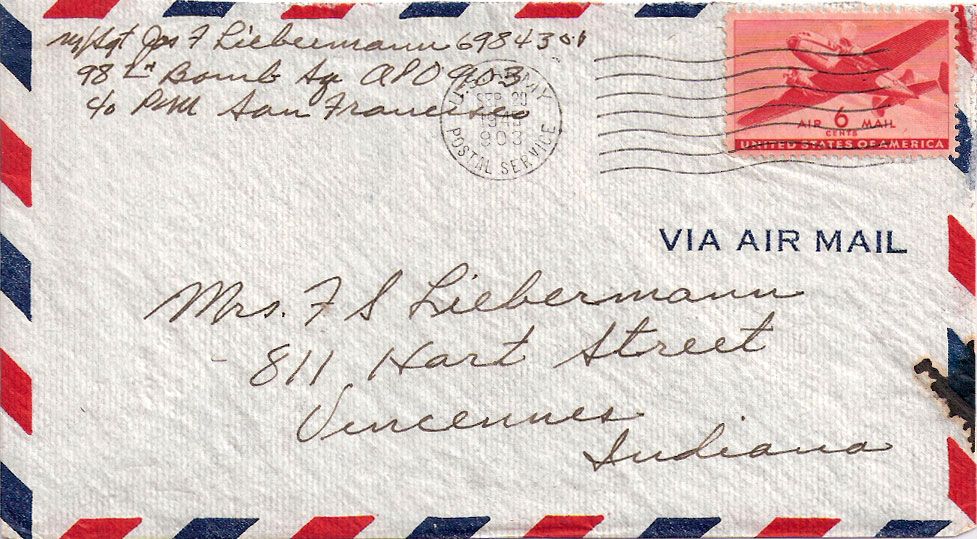 M/Sgt Jos F Liebermann 6984301
98th Bomb Sq APO 903
c/o P.M San Francisco
U.S. ARMY
SEP 29
903
POSTAL SERVICE
AIR 6 MAIL
CENTS
UNITED STATES OF AMERICA
VIA AIR MAIL
Mrs. F S Liebermann
811 Hart Street
Vincennes
Indiana